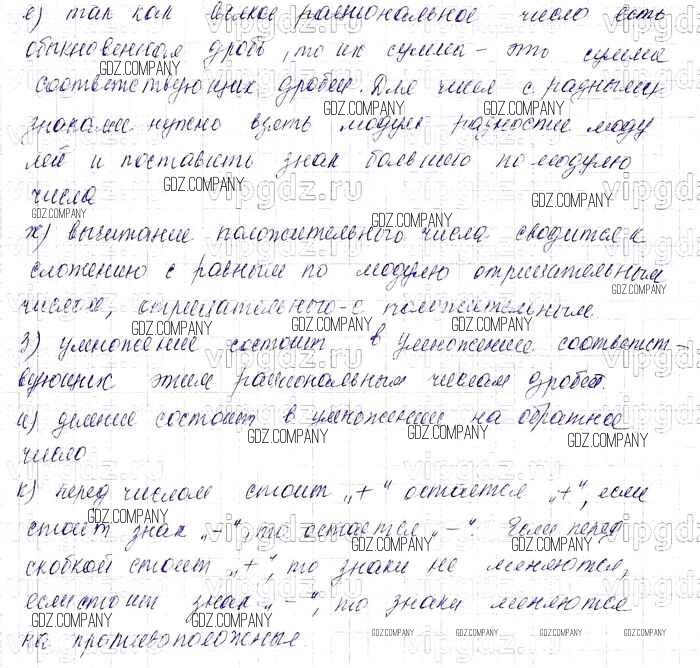 е) так как всякое рациональное число есть
обыкновенная дробь, то их сумма - это сумма
соответствующих дробей. Для чисел с разными
знаками нужно взять модуль разности моду
лей и поставить знак большего по модулю
числа
ж) вычитание положительного числа сводится к
сложению с равным по модулю отрицательным
числом, отрицательного - с положительным.
з) умножение состоит в умножение соответст-
вующих этим рациональным числам дробей.
и) деление состоит в умножении на обратное
число
к) перед числом стоит „+“ остается „+“, если
стоит знак „-“, то остается „-“. Если перед
скобкой стоит „+“, то знаки не меняются,
если стоит знак „-“, то знаки меняются
на противоположные